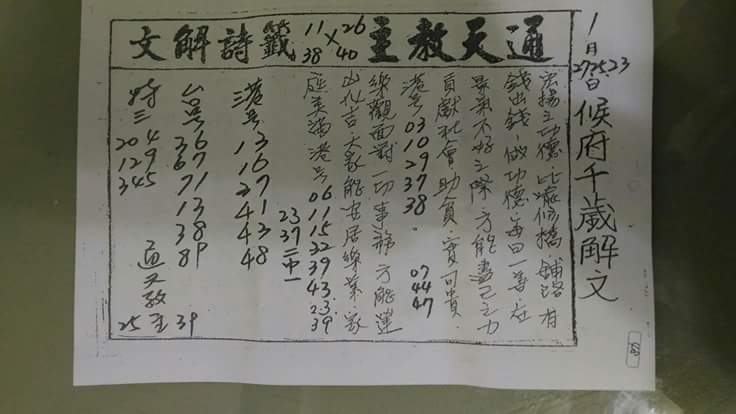 1月
27 25 23日
候府千歲解文
通天教主籤詩解文
11 38 × 26 40
宏揚立功德.比喻修橋.鋪路有
錢出錢 做功德每日一善.在
景氣不好之際.方能盡己之力
貢獻社會助貧.實可貴.
港号 03 10 29 37 38. 07 44 47
樂觀面對一切事務方能運
出化吉.大家能安居樂業.家
庭美滿 港号 06 11 15 32 39 43. 23. 39
23 37 二中一
港号 13 16 27 41 43 48
台号 36 67 71 13 38 89
特三 204 129 345
通天教主 39
25